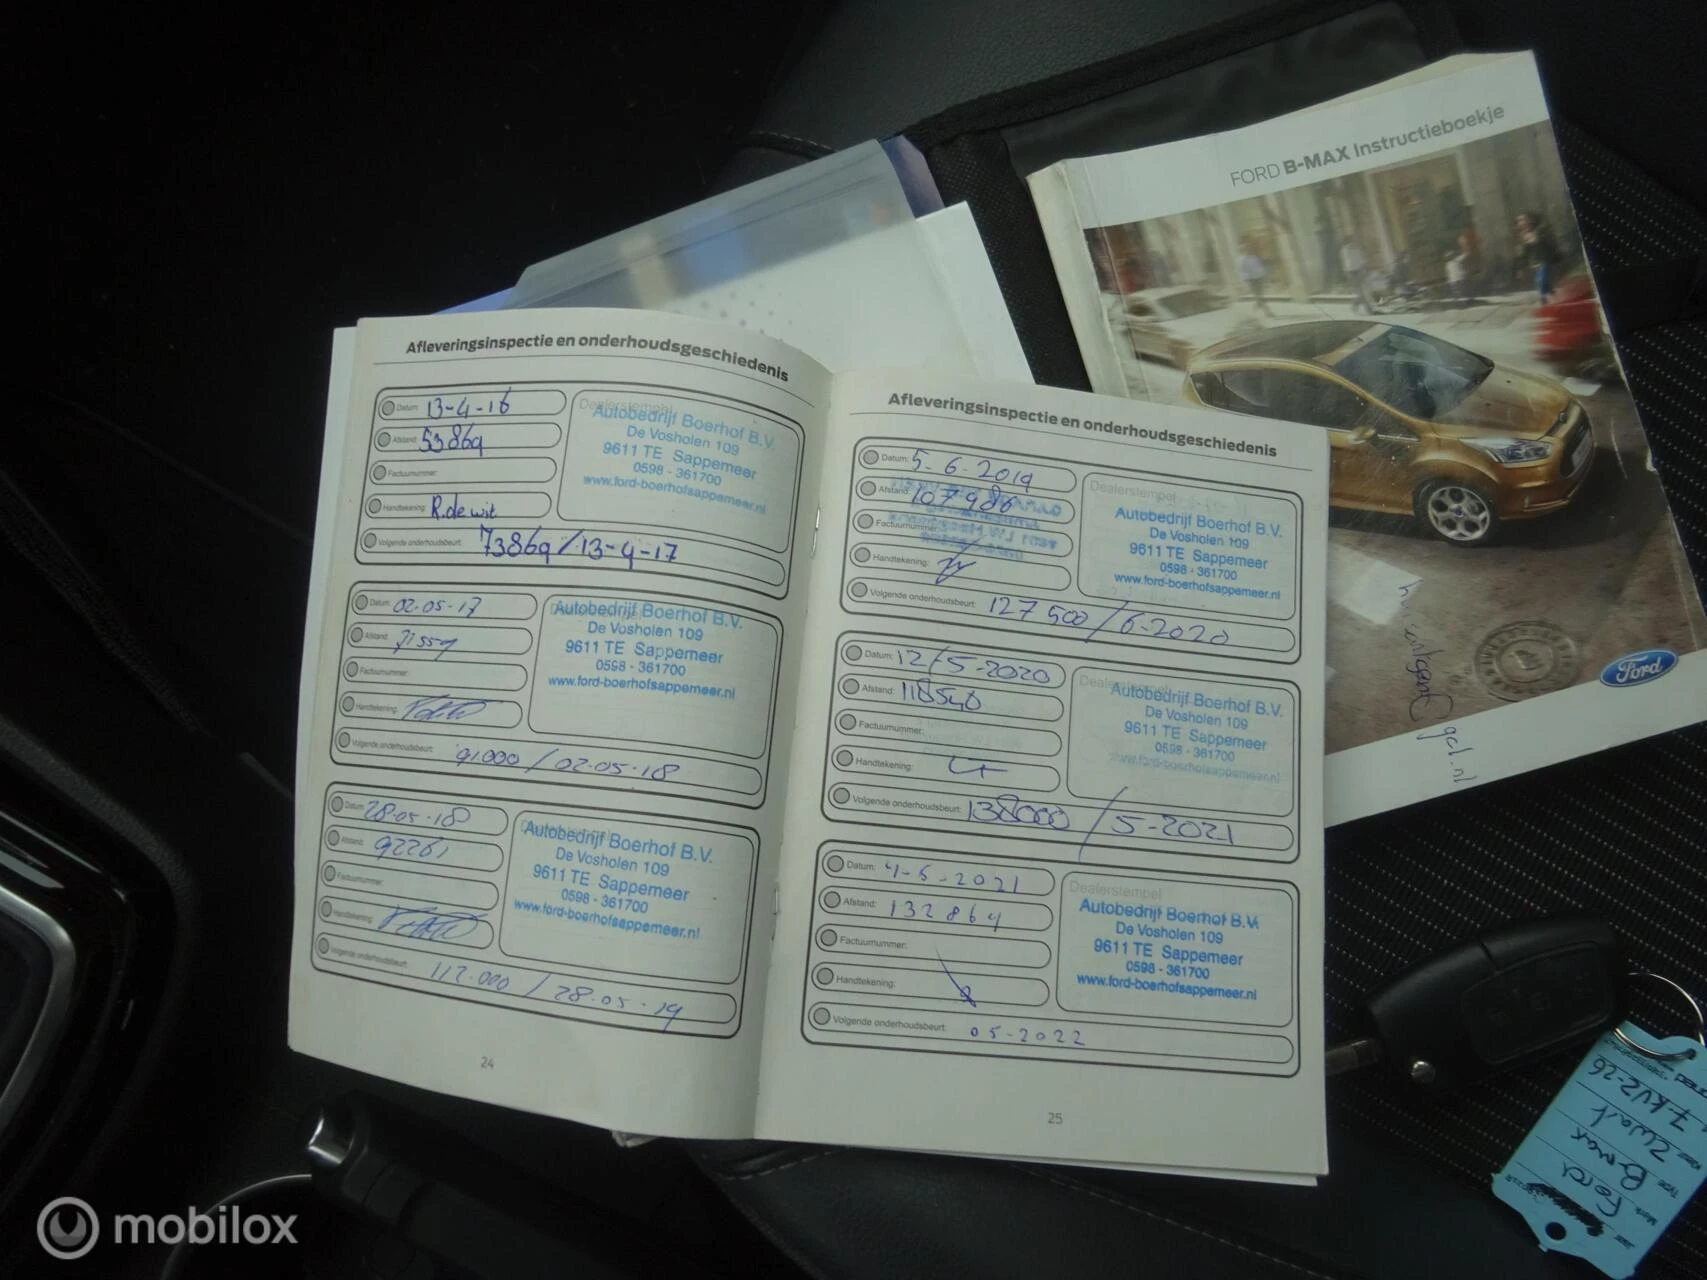 FORD B-MAX Instructieboekje
Ford
Afleveringsinspectie en onderhoudsgeschiedenis
Datum: 13-4-16
Afstand: 53869
Factuurnummer:
Handtekening: R.de wit
Volgende onderhoudsbeurt: 73869/13-4-17
Dealerstempel
Autobedrijf Boerhof B.V.
De Vosholen 109
9611 TE Sappemeer
0598 - 361700
www.ford-boerhofsappemeer.nl
Datum: 02-05-17
Afstand: 71559
Factuurnummer:
Handtekening:
Volgende onderhoudsbeurt: 91.000 / 02-05-18
Autobedrijf Boerhof B.V.
De Vosholen 109
9611 TE Sappemeer
0598 - 361700
www.ford-boerhofsappemeer.nl
Datum: 28-05-18
Afstand: 92261
Factuurnummer:
Handtekening:
Volgende onderhoudsbeurt: 112.000 / 28-05-19
Autobedrijf Boerhof B.V.
De Vosholen 109
9611 TE Sappemeer
0598 - 361700
www.ford-boerhofsappemeer.nl
24
Afleveringsinspectie en onderhoudsgeschiedenis
Datum: 5-6-2019
Afstand: 107986
Factuurnummer:
Handtekening:
Volgende onderhoudsbeurt: 127500/6-2020
Dealerstempel
Autobedrijf Boerhof B.V.
De Vosholen 109
9611 TE Sappemeer
0598 - 361700
www.ford-boerhofsappemeer.nl
Datum: 12/5-2020
Afstand: 118540
Factuurnummer:
Handtekening:
Volgende onderhoudsbeurt: 138000/5-2021
Dealerstempel
Autobedrijf Boerhof B.V.
De Vosholen 109
9611 TE Sappemeer
0598 - 361700
www.ford-boerhofsappemeer.nl
Datum: 4-6-2021
Afstand: 132864
Factuurnummer:
Handtekening:
Volgende onderhoudsbeurt: 05-2022
Dealerstempel
Autobedrijf Boerhof B.V.
De Vosholen 109
9611 TE Sappemeer
0598 - 361700
www.ford-boerhofsappemeer.nl
25
Merk Ford
Type B-max
Kleur Zwart
7-KVZ-26
mobilox